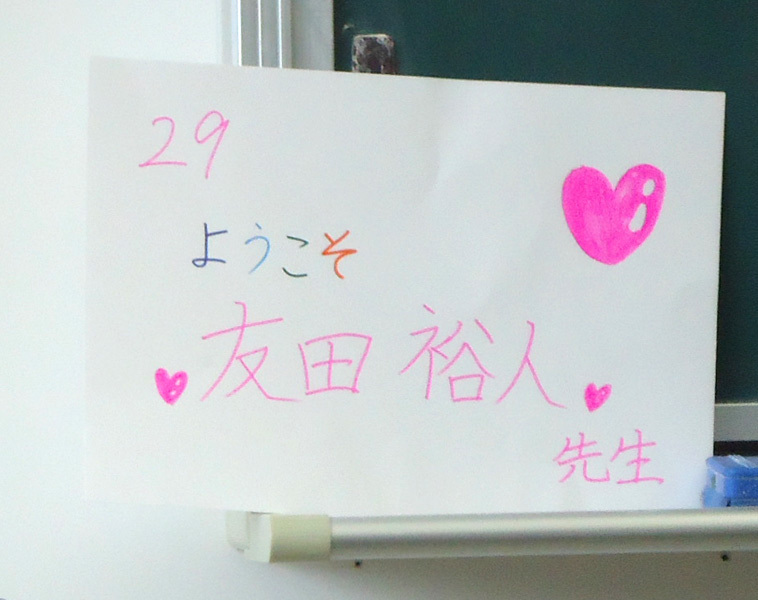 29
ようこそ
友田 裕人
先生